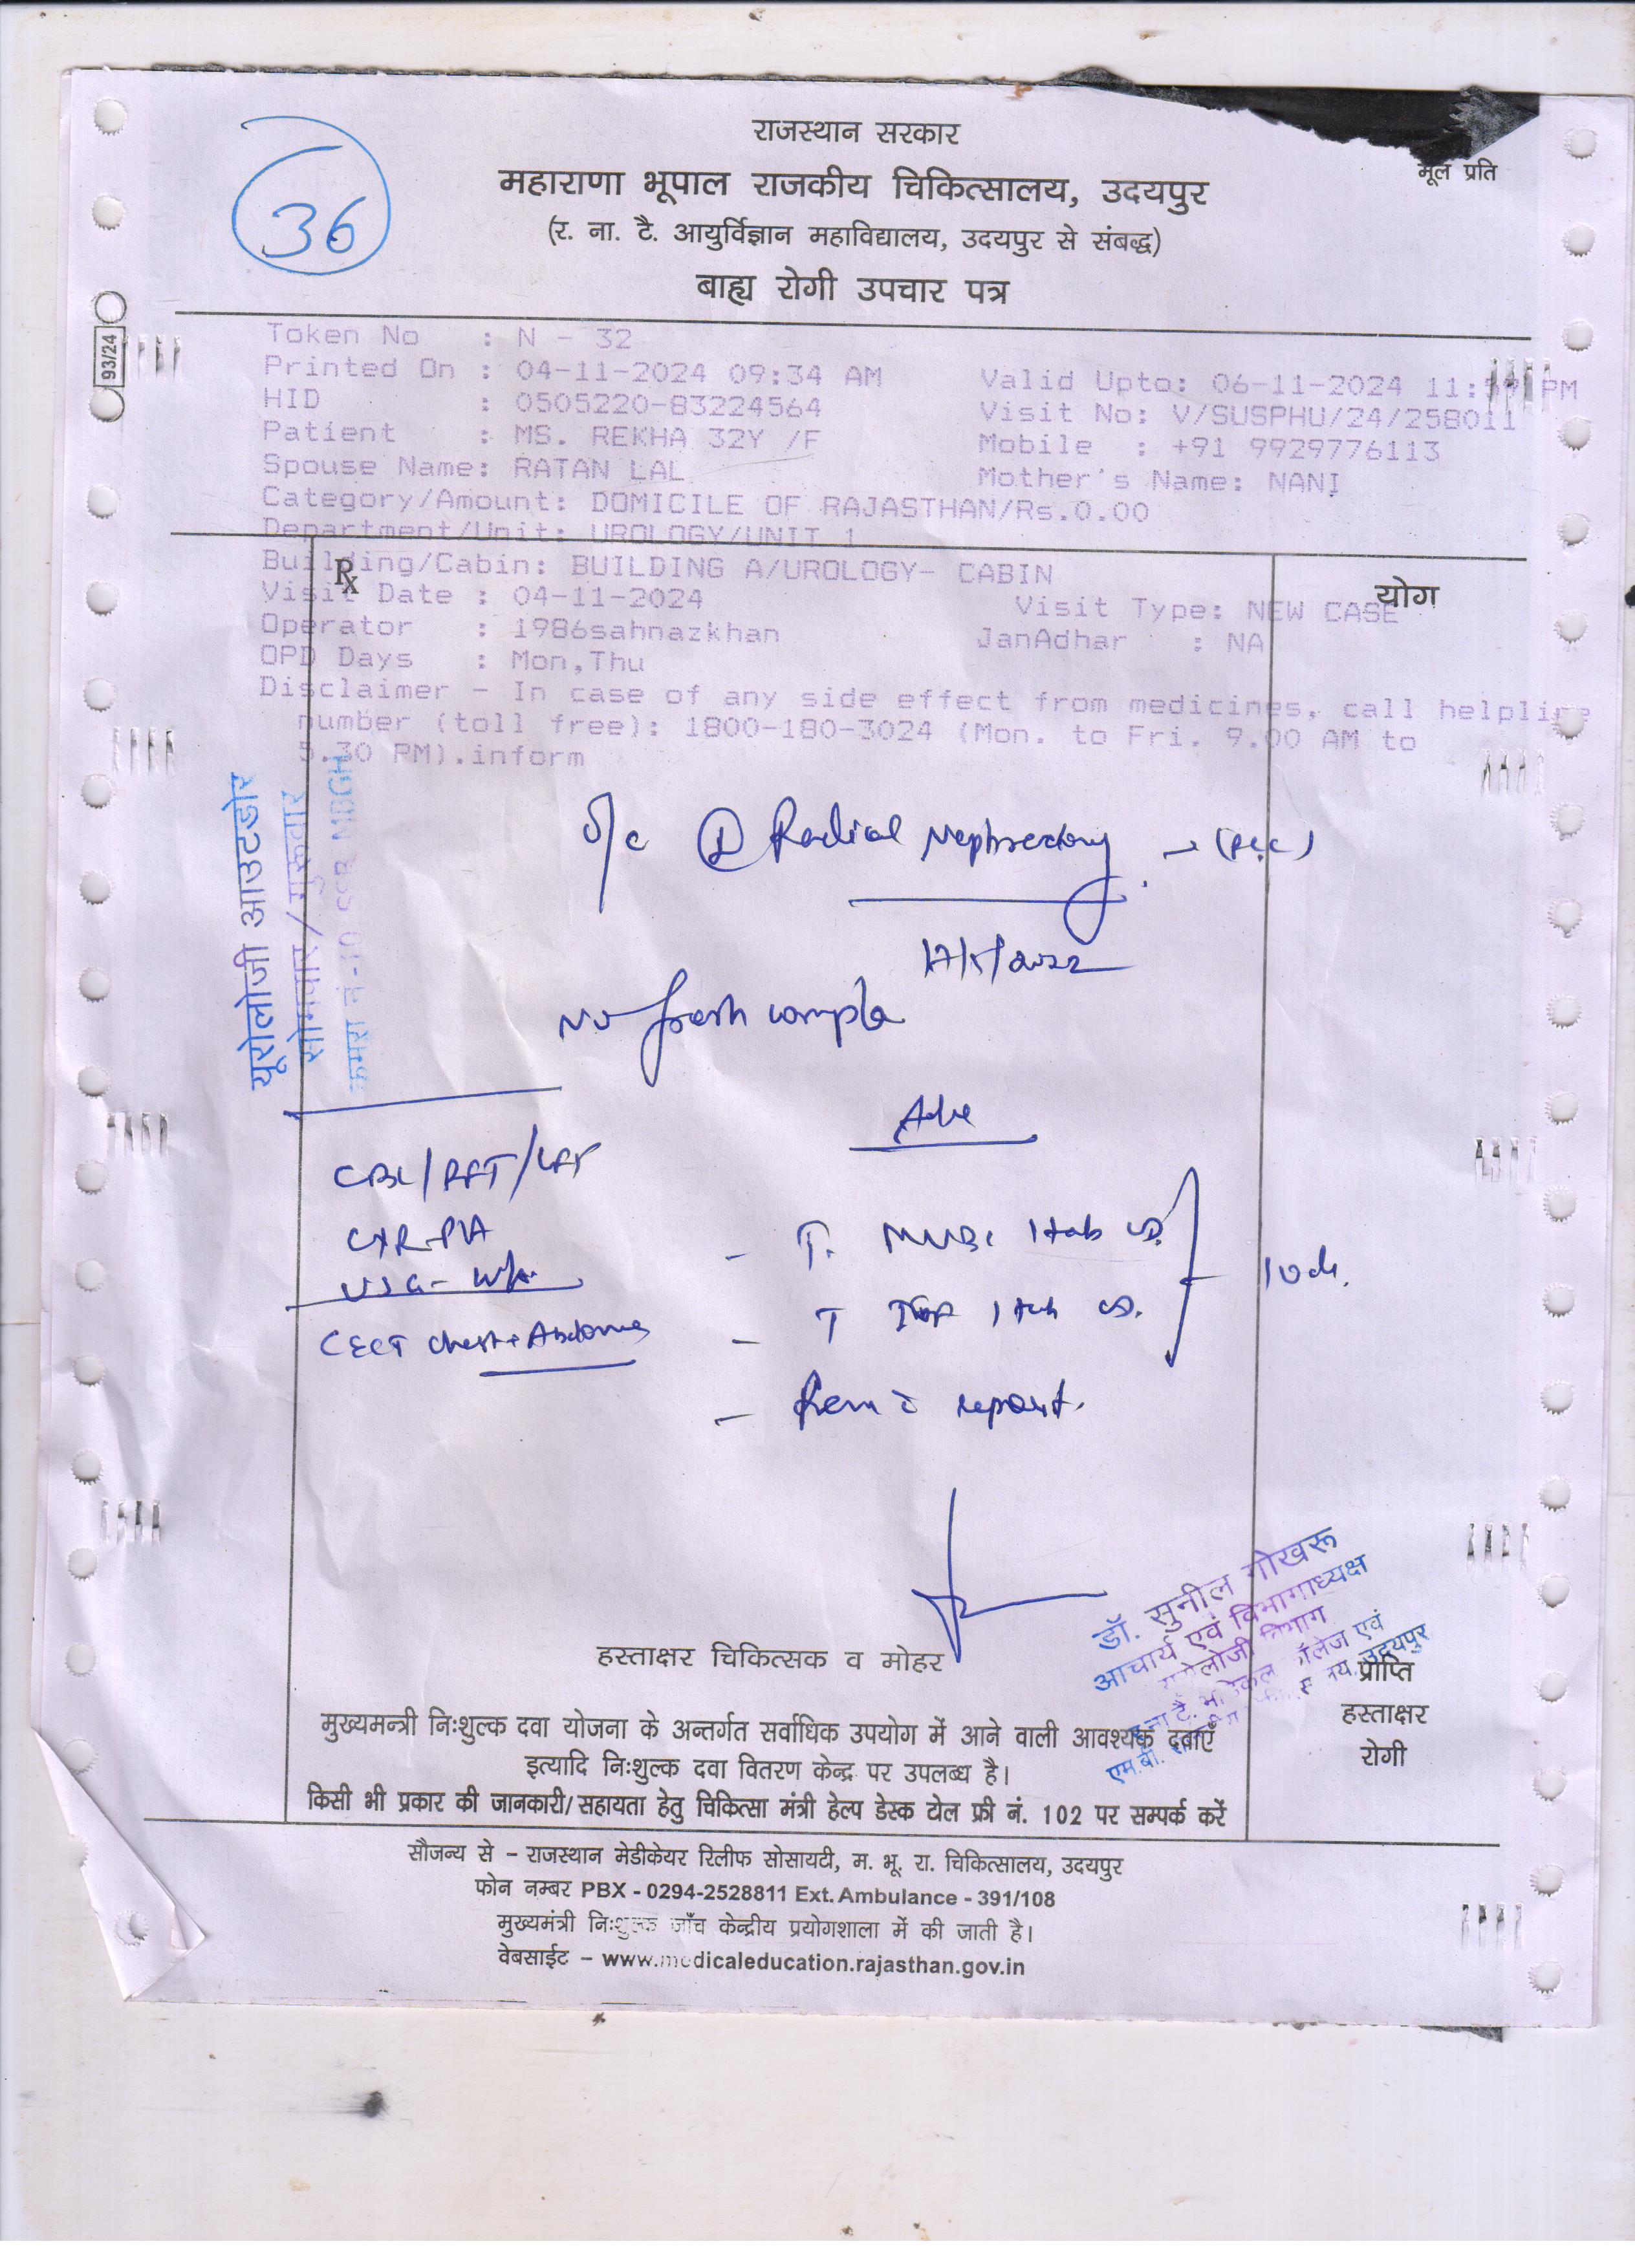 राजस्थान सरकार
मूल प्रति
36
महाराणा भूपाल राजकीय चिकित्सालय, उदयपुर
(र. ना. टै. आयुर्विज्ञान महाविद्यालय, उदयपुर से संबद्ध)
बाह्य रोगी उपचार पत्र
93/24
Token No : N - 32
Printed On : 04-11-2024 09:34 AM Valid Upto: 06-11-2024 11:59 PM
HID : 0505220-83224564 Visit No: V/SUSPHU/24/258011
Patient : MS. REKHA 32Y /F Mobile : +91 9929776113
Spouse Name: RATAN LAL Mother's Name: NANI
Category/Amount: DOMICILE OF RAJASTHAN/Rs.0.00
Department/Unit: UROLOGY/UNIT 1
Building/Cabin: BUILDING A/UROLOGY- CABIN
℞
योग
Visit Date : 04-11-2024 Visit Type: NEW CASE
Operator : 1986sahnazkhan JanAdhar : NA
OPD Days : Mon,Thu
Disclaimer - In case of any side effect from medicines, call helpline
number (toll free): 1800-180-3024 (Mon. to Fri. 9.00 AM to
5.30 PM).inform
यूरोलोजी आउटडोर
सोमवार / गुरुवार
कमरा नं-10 MBGH
Radical Nephrectomy → (RCC)
No fresh
Adv
CBC/RFT/LFT
CXR-PA
USG- W/A
CECT Chest + Abdomen
- T. 1 tab OD.
- T 1 tab OD.
10 d.
- Rem c̄ report.
डॉ. सुनील गोखरू
आचार्य एवं विभागाध्यक्ष
यूरोलोजी विभाग
हस्ताक्षर चिकित्सक व मोहर
प्राप्ति
हस्ताक्षर
रोगी
मुख्यमन्त्री निःशुल्क दवा योजना के अन्तर्गत सर्वाधिक उपयोग में आने वाली आवश्यक दवाएँ
इत्यादि निःशुल्क दवा वितरण केन्द्र पर उपलब्ध है।
किसी भी प्रकार की जानकारी/सहायता हेतु चिकित्सा मंत्री हेल्प डेस्क टोल फ्री नं. 102 पर सम्पर्क करें
सौजन्य से - राजस्थान मेडीकेयर रिलीफ सोसायटी, म. भू. रा. चिकित्सालय, उदयपुर
फोन नम्बर PBX - 0294-2528811 Ext. Ambulance - 391/108
मुख्यमंत्री निःशुल्क जाँच केन्द्रीय प्रयोगशाला में की जाती है।
वेबसाईट - www.medicaleducation.rajasthan.gov.in